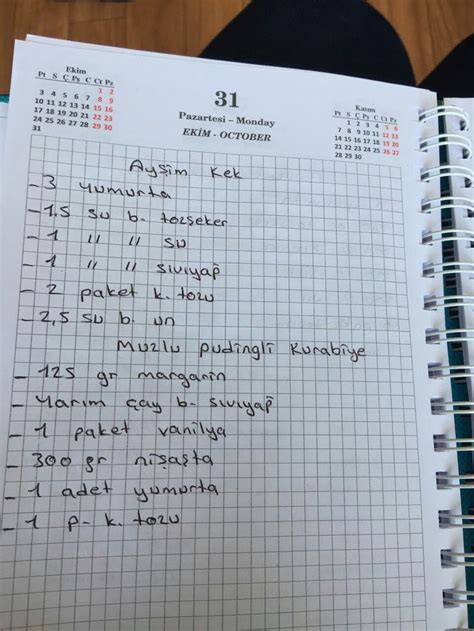 Ekim
Pt S Ç Ps C Ct Pz
1 2
3 4 5 6 7 8 9
10 11 12 13 14 15 16
17 18 19 20 21 22 23
24 25 26 27 28 29 30
31
31
Pazartesi – Monday
EKİM - OCTOBER
Kasım
Pt S Ç Ps C Ct Pz
1 2 3 4 5 6
7 8 9 10 11 12 13
14 15 16 17 18 19 20
21 22 23 24 25 26 27
28 29 30
Ayşim Kek
- 3 yumurta
- 1,5 su b. tozşeker
- 1 // // su
- 1 // // sıvıyağ
- 2 paket k. tozu
- 2,5 su b. un
Muzlu pudingli Kurabiye
- 125 gr margarin
- Yarım çay b- sıvıyağ
- 1 paket vanilya
- 300 gr nişasta
- 1 adet yumurta
- 1 p- k. tozu